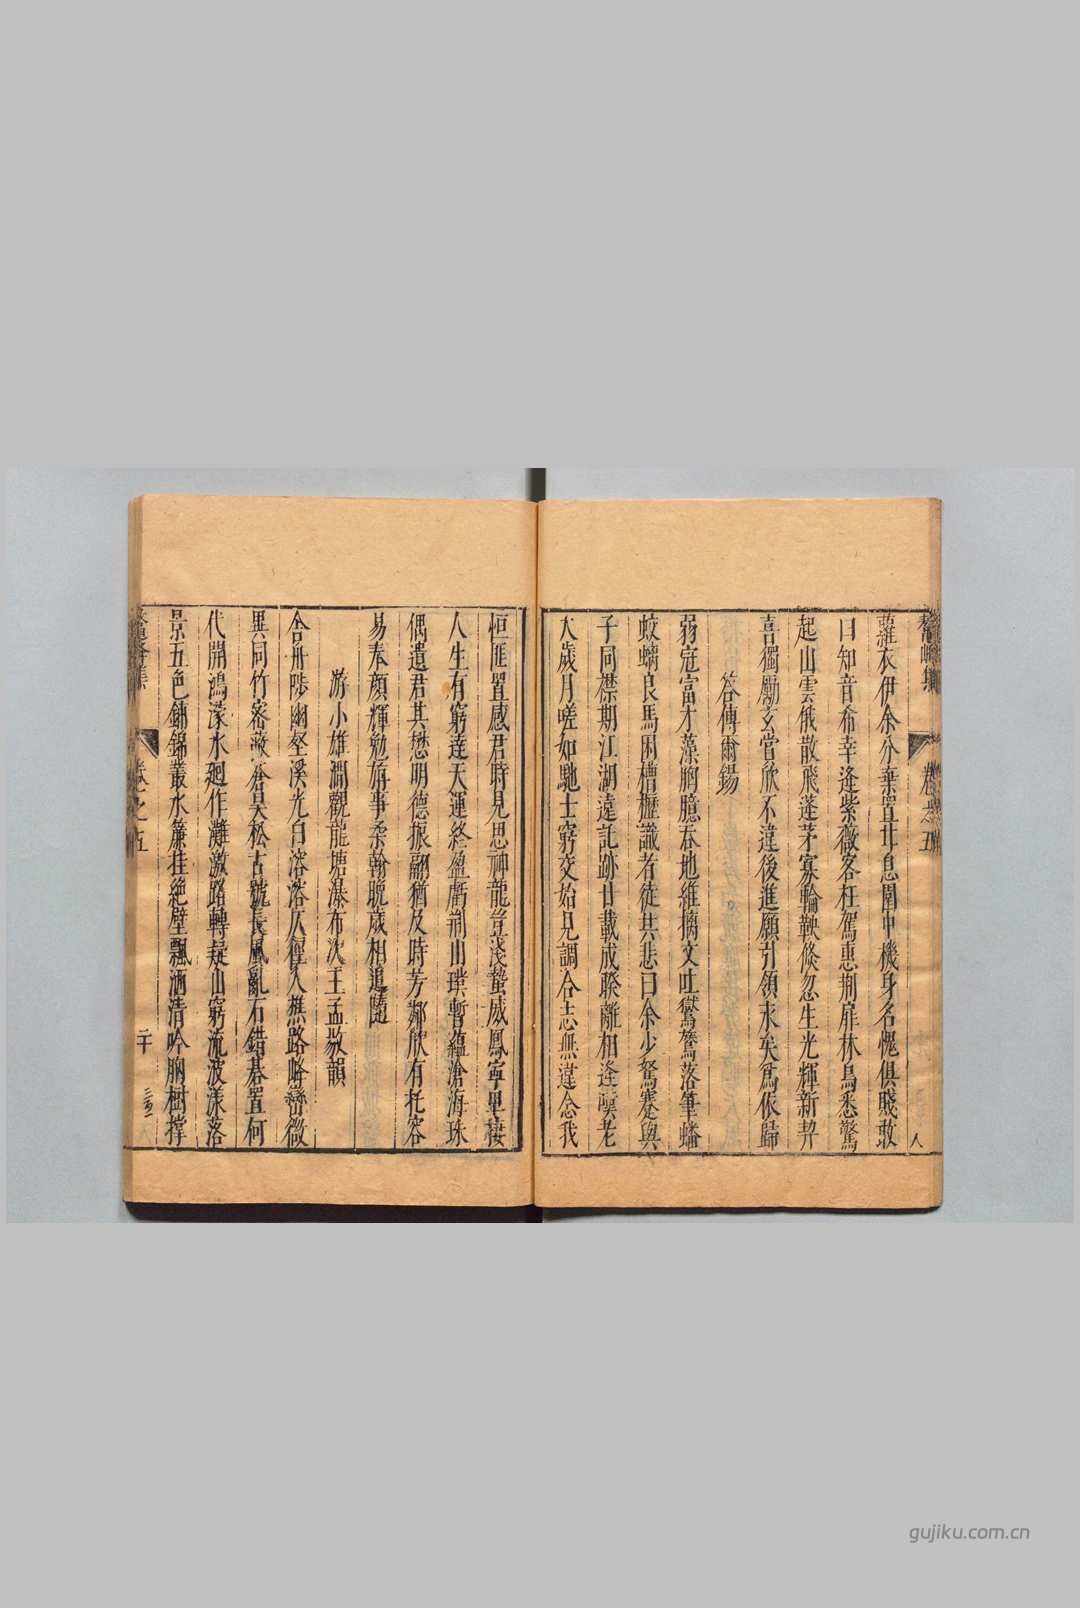 蘿衣伊余分棄置廿息圍中機身名愧俱賤敢
曰知音希幸逢紫薇客枉駕惠荆扉林鳥悉驚
起山雲俄散飛蓬茅寡輪鞅倐忽生光輝新辤
喜獨勵玄嘗欣不違後進願引領永矣爲依歸
答傅爾錫
弱冠富才藻胸臆吞地維摛文吐鸑鷟落筆蟠
蛟螭良馬困槽櫪識者徒共悲曰余少駑蹇與
子同襟期江湖遠託跡廿載成暌離相逢嗟老
大歲月嗟如馳士窮交始見調合志無違念我
恒匪置感君時見思神龍豈淺蟄威鳳寧卑棲
人生有窮達天運終盈虧荊山璞暫蘊滄海珠
偶遺君其懋明德振翮猶及時芳鄰欣有托容
易奉顔輝勉旃事柔翰晚歲相追隨
游小雄淵觀龍塘瀑布次王孟敬韻
舍舟陟幽壑溪光白溶溶仄徑入樵路峰巒微
異同竹密蔽蒼昊松古號長風亂石錯碁置何
代開鴻濛水廻作灘激路轉疑山窮流波漾落
景五色鋪錦叢水簾挂絶壁飄洒清吟胸樹撑
卷之五
二十